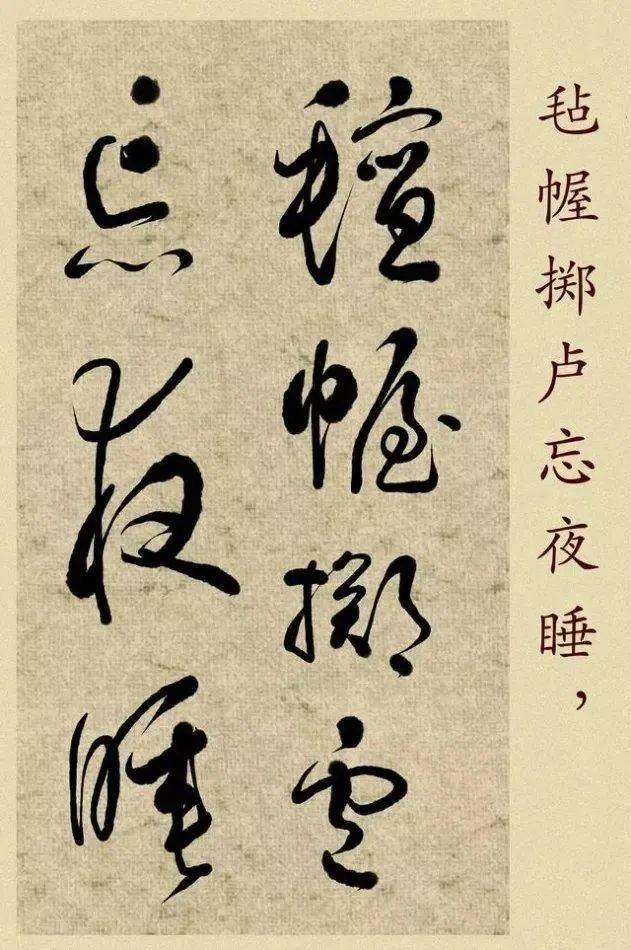 毡幄掷卢忘夜睡，
氊幄擲盧
忘夜睡